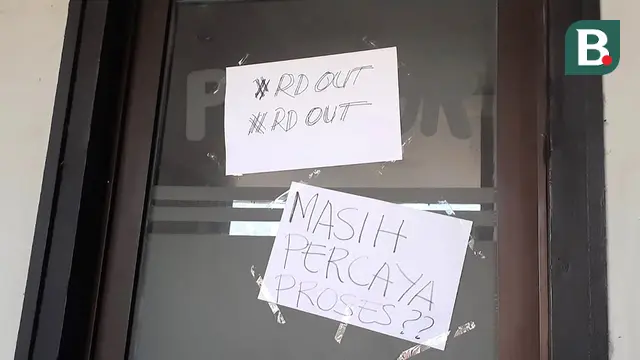 B.
# RD OUT
# RD OUT
MASIH
PERCAYA
PROSES??